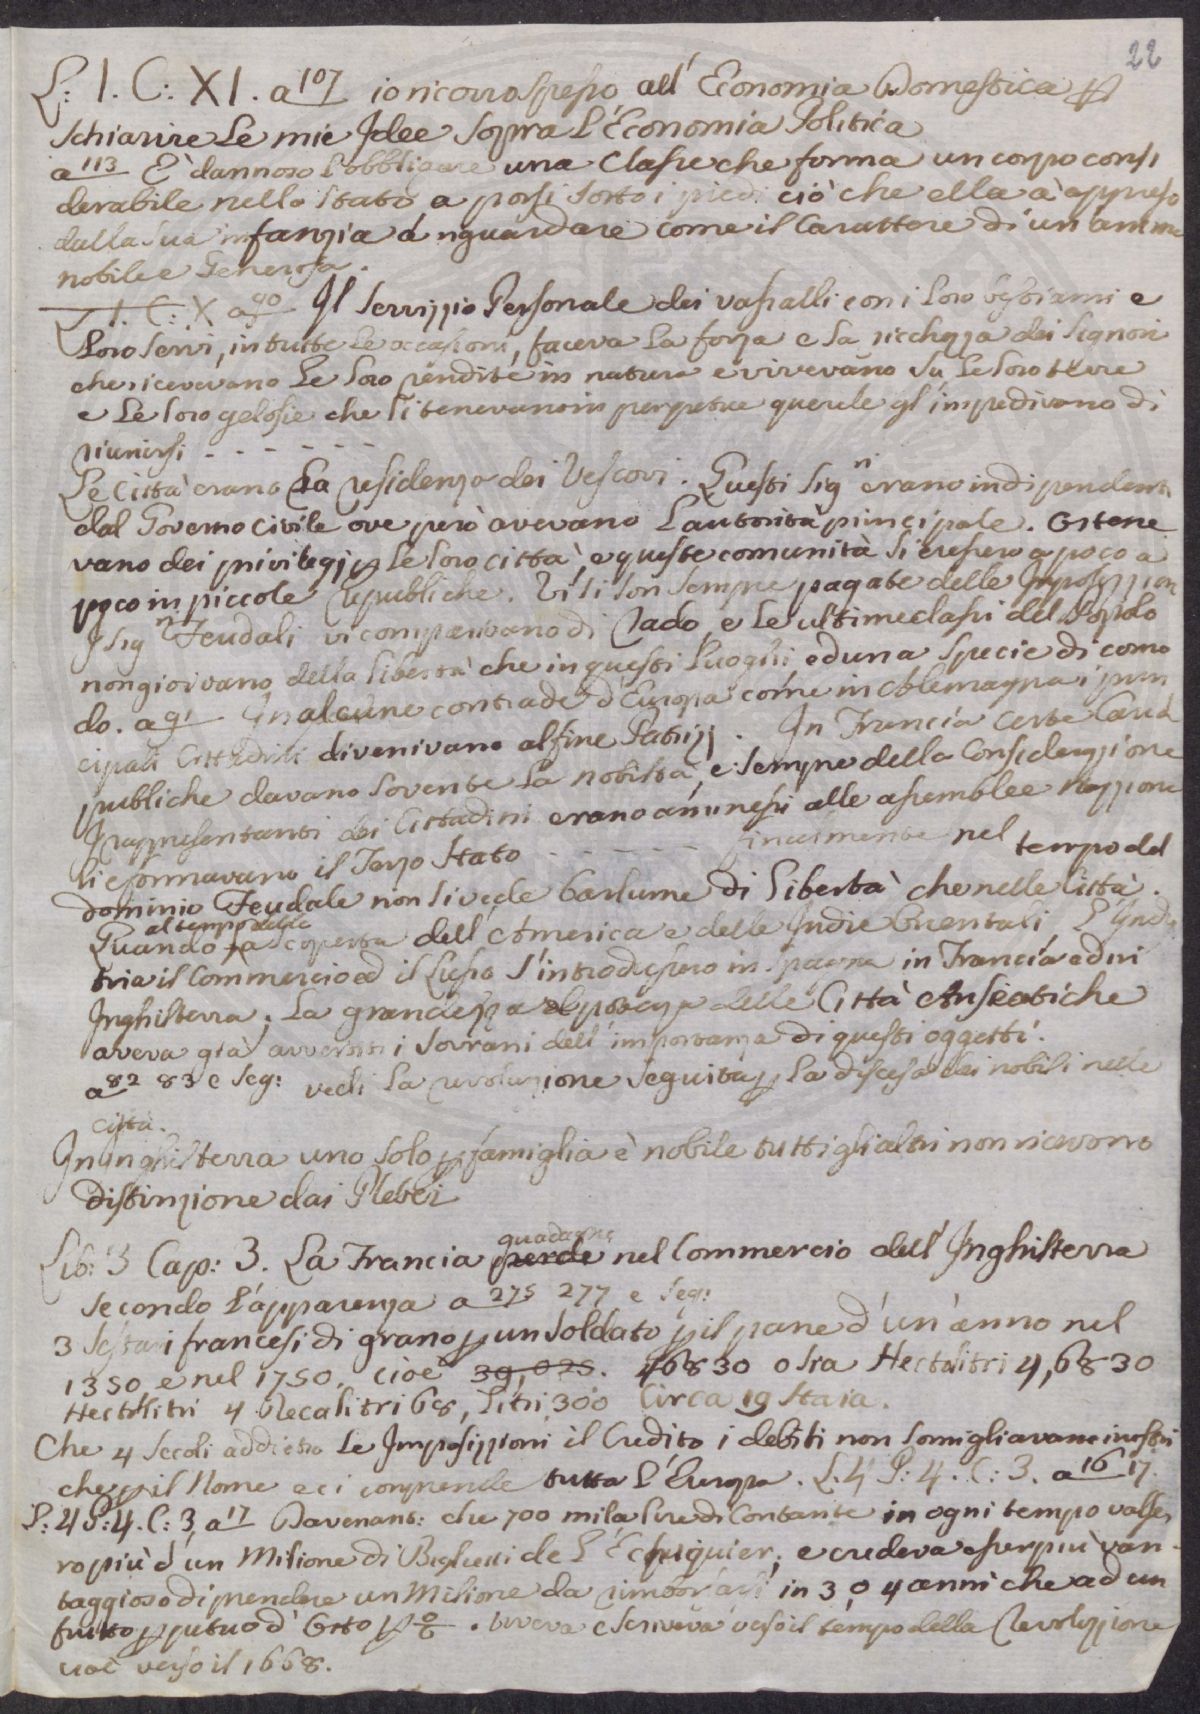 22
L: 1. C: XI. a 107 io ricorro spesso all' Economia Domestica p
schiarire le mie Idee sopra l'Economia Politica
a 113 E' dannoso l'obbligare una Classe che forma un corpo consi
derabile nello stato a porsi sotto i piedi ciò che ella à appreso
dalla sua infanzia á riguardare come il Carattere di un'anima
nobile e Generosa.
L. 1. C: X a 90 Il servizzio Personale dei vassalli con i loro bestiami e
loro servi, in tutte le occasioni, faceva la forza e la ricchezza dei Signori
che ricevevano le loro rendite in natura e vivevano su le loro terre
e le loro gelosie che li tenevano in perpetue querele gl'impedivano di
riunirsi - - - - - -
Le Città erano la residenza dei Vescovi. Questi Sig.ri erano indipendenti
dal Governo civile ove però avevano l'autorità principale. Ottene
vano dei privilegj p le loro città, e queste comunità si eressero a poco a
poco in piccole republiche. Vi si son sempre pagate delle Imposizzioni
I Sig.ri Feudali vi comparivano di rado e le ultime classi del Popolo
non gioivano della libertà che in questi Luoghi ed una specie di como
do. a 91 In alcune contrade d'Europa come in Alemagna i prin
cipali Cittadini divenivano alfine Patrizj. In Francia certe Cariche
publiche davano sovente la nobiltà, e sempre della Considerazione
I rappresentanti dei Cittadini erano ammessi alle assemblee Nazziona
li e formavano il Terzo Stato - - - - - - finalmente nel tempo del
dominio Feudale non si vede barlume di libertà che nelle Città.
al tempo della
Quando la scoperta dell'America e delle Indie Orientali L'Indu
tria il Commercio ed il Lusso s'introdussero in Spagna in Francia ed in
Inghilterra; La grandezza e la potenza delle Città Anseatiche
aveva già avvertiti i Sovrani dell'importanza di questi oggetti.
a 82 83 e seg: vedi la rivoluzione seguita p la discesa dei nobili nelle
città.
In Inghilterra uno solo p famiglia è nobile tutti gli altri non ricevono
distinzione dai Plebei
guadagna
Lib: 3 Cap: 3. La Francia perde nel Commercio dell'Inghilterra
secondo l'apparenza a 275 277 e seg:
3 Sestari francesi di grano p un soldato p il pane d'un'anno nel
1350 e nel 1750. cioè 39,025. 46830 o sia Hectolitri 4,6830
Hectolitri 4 Decalitri 68, litri 300 Circa 19 staia.
Che 4 secoli addietro le Imposizzioni il Credito i debiti non somigliavano i nostri
che p il Nome e ci comprende tutta l'Europa. L. 4 P: 4. C: 3. a 16 17.
L: 4 P: 4. C: 3, a 17 Davenant: che 700 mila lire di Contante in ogni tempo valse
ro più d'un Milione di Biglietti de L'Echiquier; e credeva esser più van-
taggioso di prendere un Milione da rimborsarsi in 3, o 4 anni che ad un
frutto p petuo d'Otto p %. viveva e scriveva verso il tempo della Revoluzzione
cioè verso il 1668.